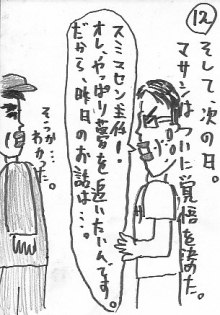 ⑫
そして次の日。
マサシはついに覚悟を決めた。
スミスセン主任！
オレ、やっぱり夢を追いたいんです。
だから、昨日のお話は…。
そっか…
わかった。